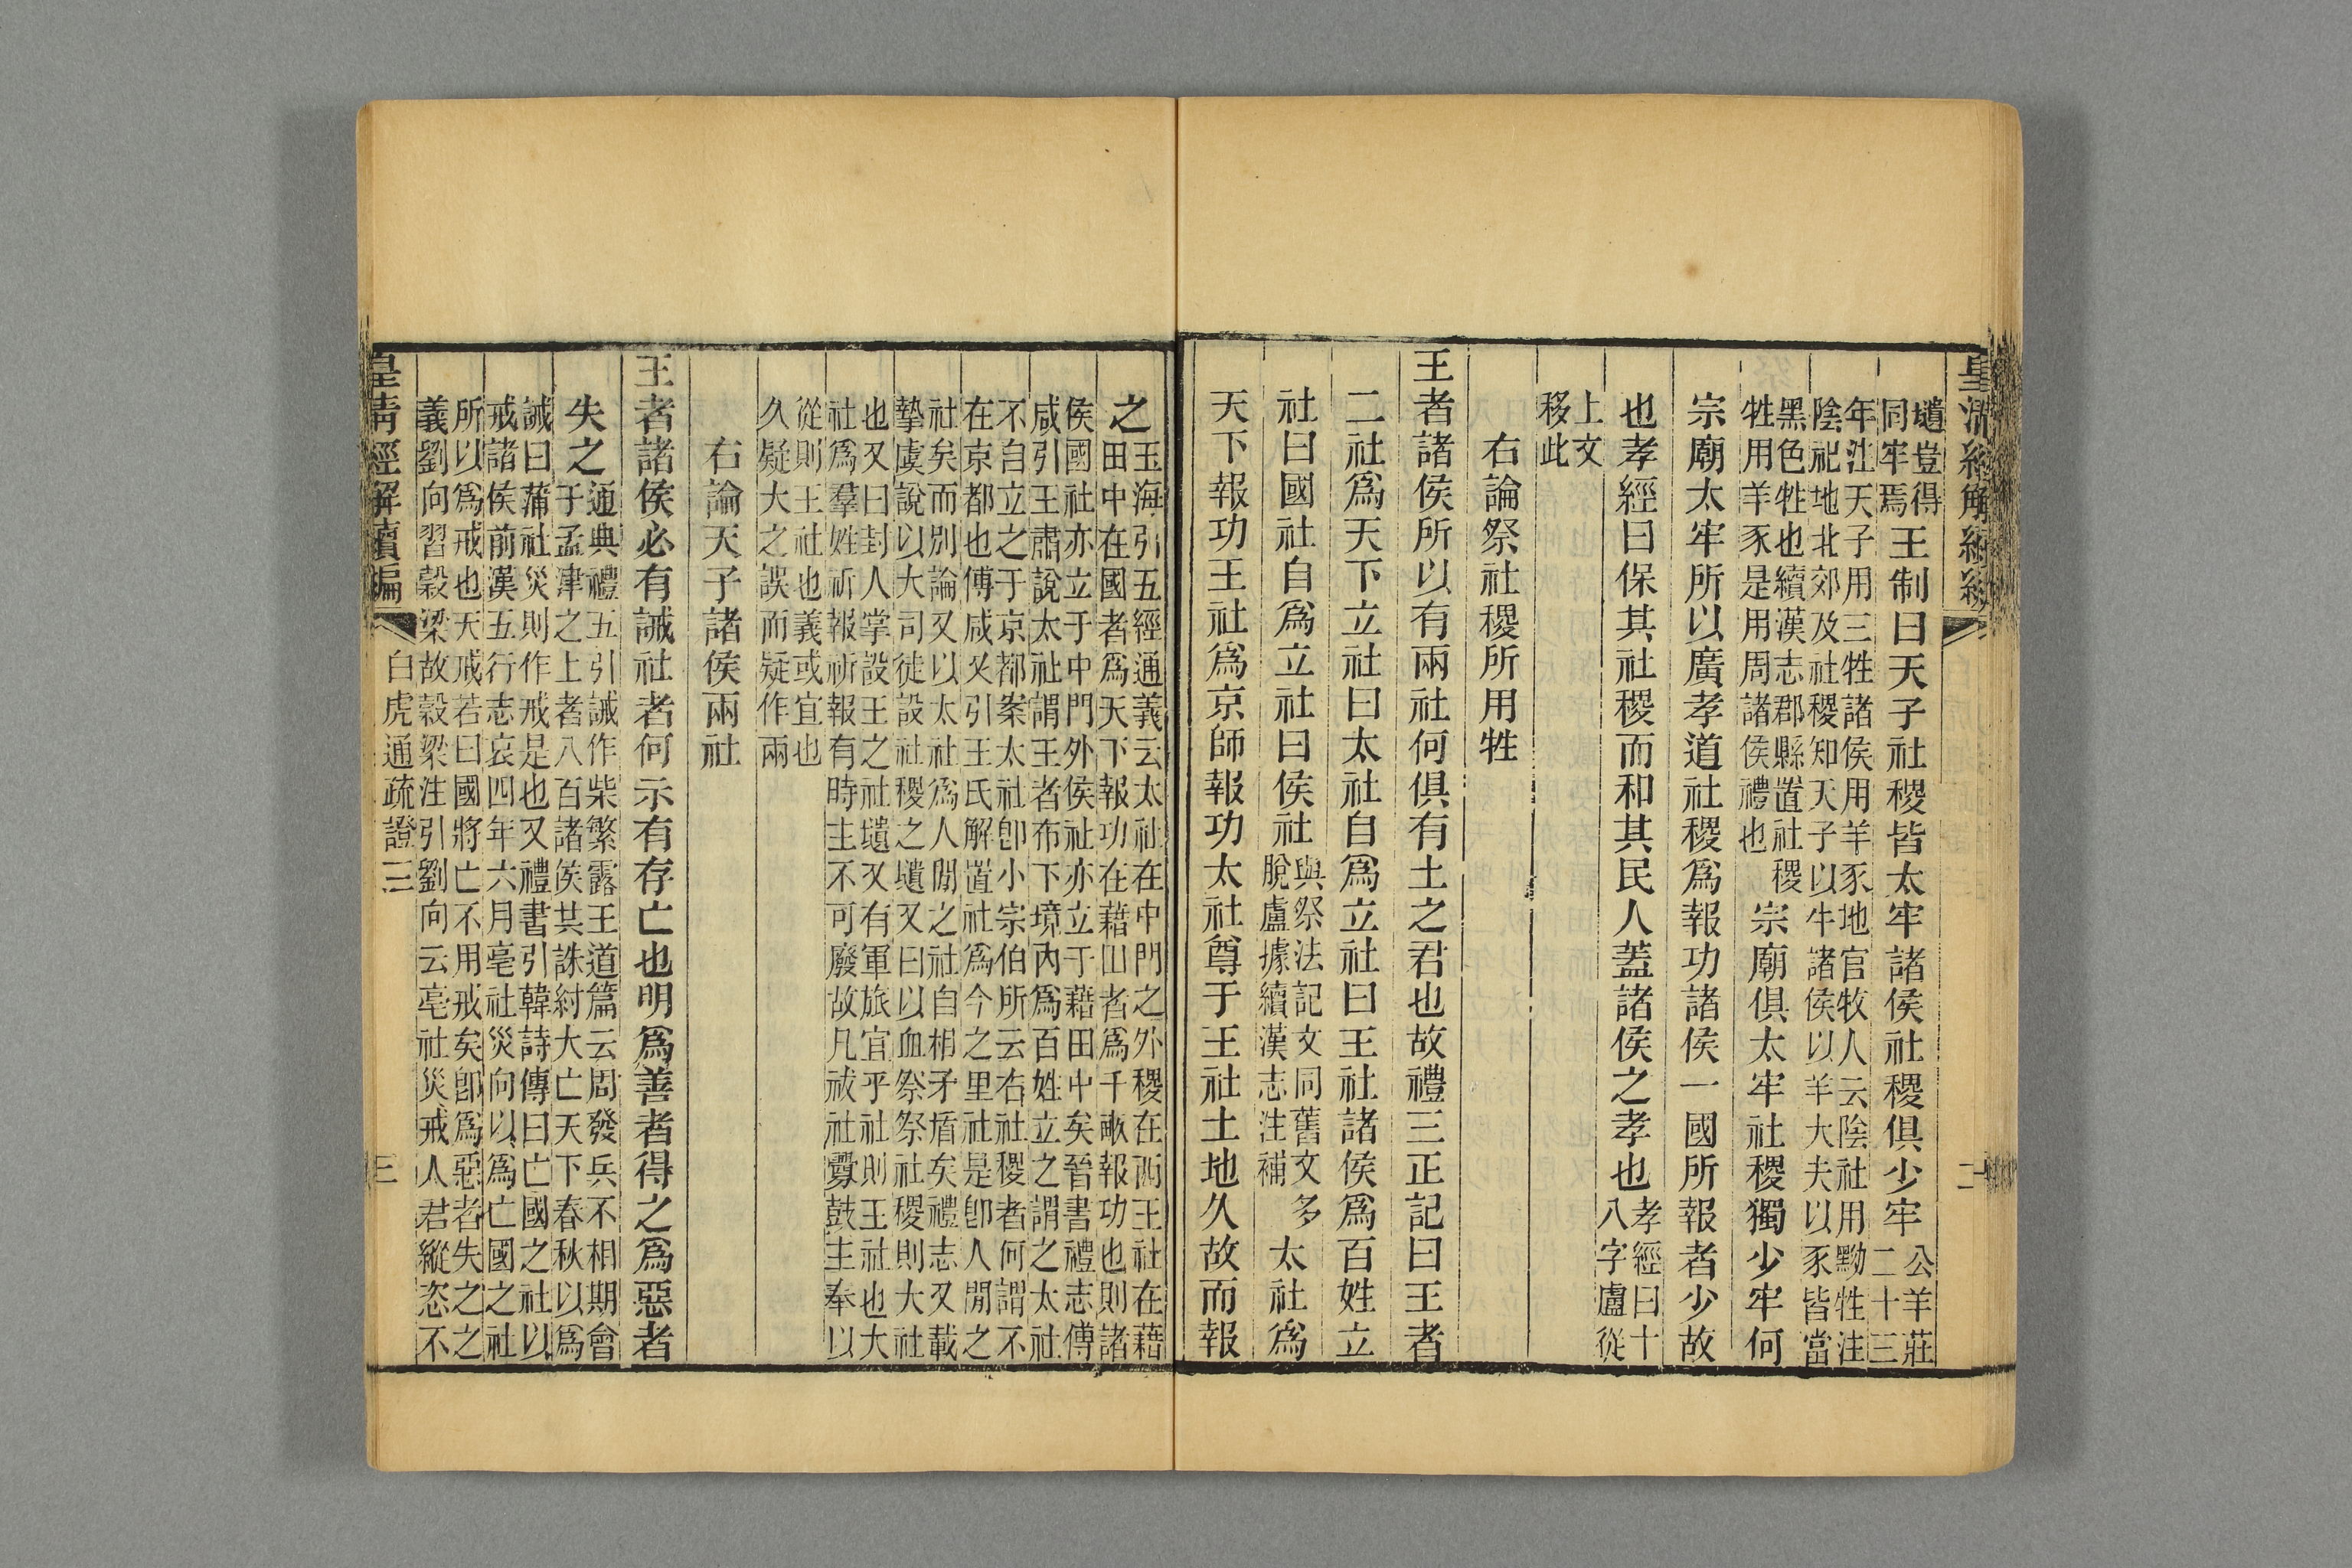 皇清經解續編
二
壝豈得
同牢焉
王制曰天子社稷皆太牢諸侯社稷俱少牢
公羊莊
二十三
年注天子用三牲諸侯用羊豕地官牧人云陰社用黝牲注
陰祀地北郊及社稷知天子以牛諸侯以羊大夫以豕皆當
黑色牲也續漢志郡縣置社稷
牲用羊豕是用周諸侯禮也
宗廟俱太牢社稷獨少牢何
宗廟太牢所以廣孝道社稷爲報功諸侯一國所報者少故
也孝經曰保其社稷而和其民人蓋諸侯之孝也
孝經曰十
八字盧從
上文
移此
右論祭社稷所用牲
王者諸侯所以有兩社何俱有土之君也故禮三正記曰王者
二社爲天下立社曰太社自爲立社曰王社諸侯爲百姓立
社曰國社自爲立社曰侯社
與祭法記文同舊文多
脫盧據續漢志注補
太社爲
天下報功王社爲京師報功太社尊于王社土地久故而報
之
玉海引五經通義云太社在中門之外稷在西王社在藉
田中在國者爲天下報功在藉田者爲千畝報功也則諸
侯國社亦立于中門外侯社亦立于藉田中矣晉書禮志傅
咸引王肅說太社謂王者布下境內爲百姓立之謂之太社
不自立之于京都案太社卽小宗伯所云右社稷者何謂不
在京都也傅咸又引王氏解置社爲今之里社是卽人閒之
社矣而別論又以太社爲人閒之社自相矛盾矣禮志又載
摯虞說以大司徒設社稷之壝又曰以血祭祭社稷則大社
也又曰封人掌設王之社壝又有軍旅宜乎社則王社也大
社爲羣姓祈報祈報有時主不可廢故凡祓社釁鼓主奉以
從則王社也義或宜也
久疑大之誤而疑作兩
右論天子諸侯兩社
王者諸侯必有誡社者何示有存亡也明爲善者得之爲惡者
失之
通典禮五引誡作柴繁露王道篇云周發兵不相期會
于孟津之上者八百諸侯共誅紂大亡天下春秋以爲
誡曰蒲社災則作戒是也又禮書引韓詩傳曰亡國之社以
戒諸侯前漢五行志哀四年六月亳社災向以爲亡國之社
所以爲戒也天戒若曰國將亡不用戒矣卽爲惡者失之之
義劉向習穀梁故穀梁注引劉向云亳社災戒人君縱恣不
皇清經解續編
白虎通疏證三
三